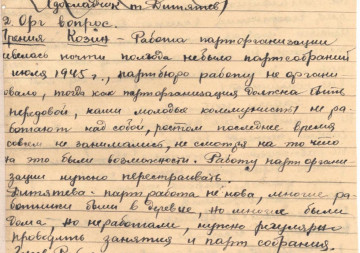 (докладчик т. Дитятев)
2 Орг вопрос.
Прения Козин – Работа парторганизации
велась почти полгода небыло партсобраний
июля 1945 г., партбюро работу не органи
овало, тогда как парторганизация должна быть
передовой, наши молодые коммунисты не ра-
ботают над собой, ростом последнее время
совсем не занимались, не смотря на то что
на это были возможности. Работу парторгани-
зации нужно перестраивать.
Дитятева - парт работа не нова, многие ра
ботники были в деревне, но многие были
дома, но неработали, нужно регулярно
проводить занятия и парт собрания.